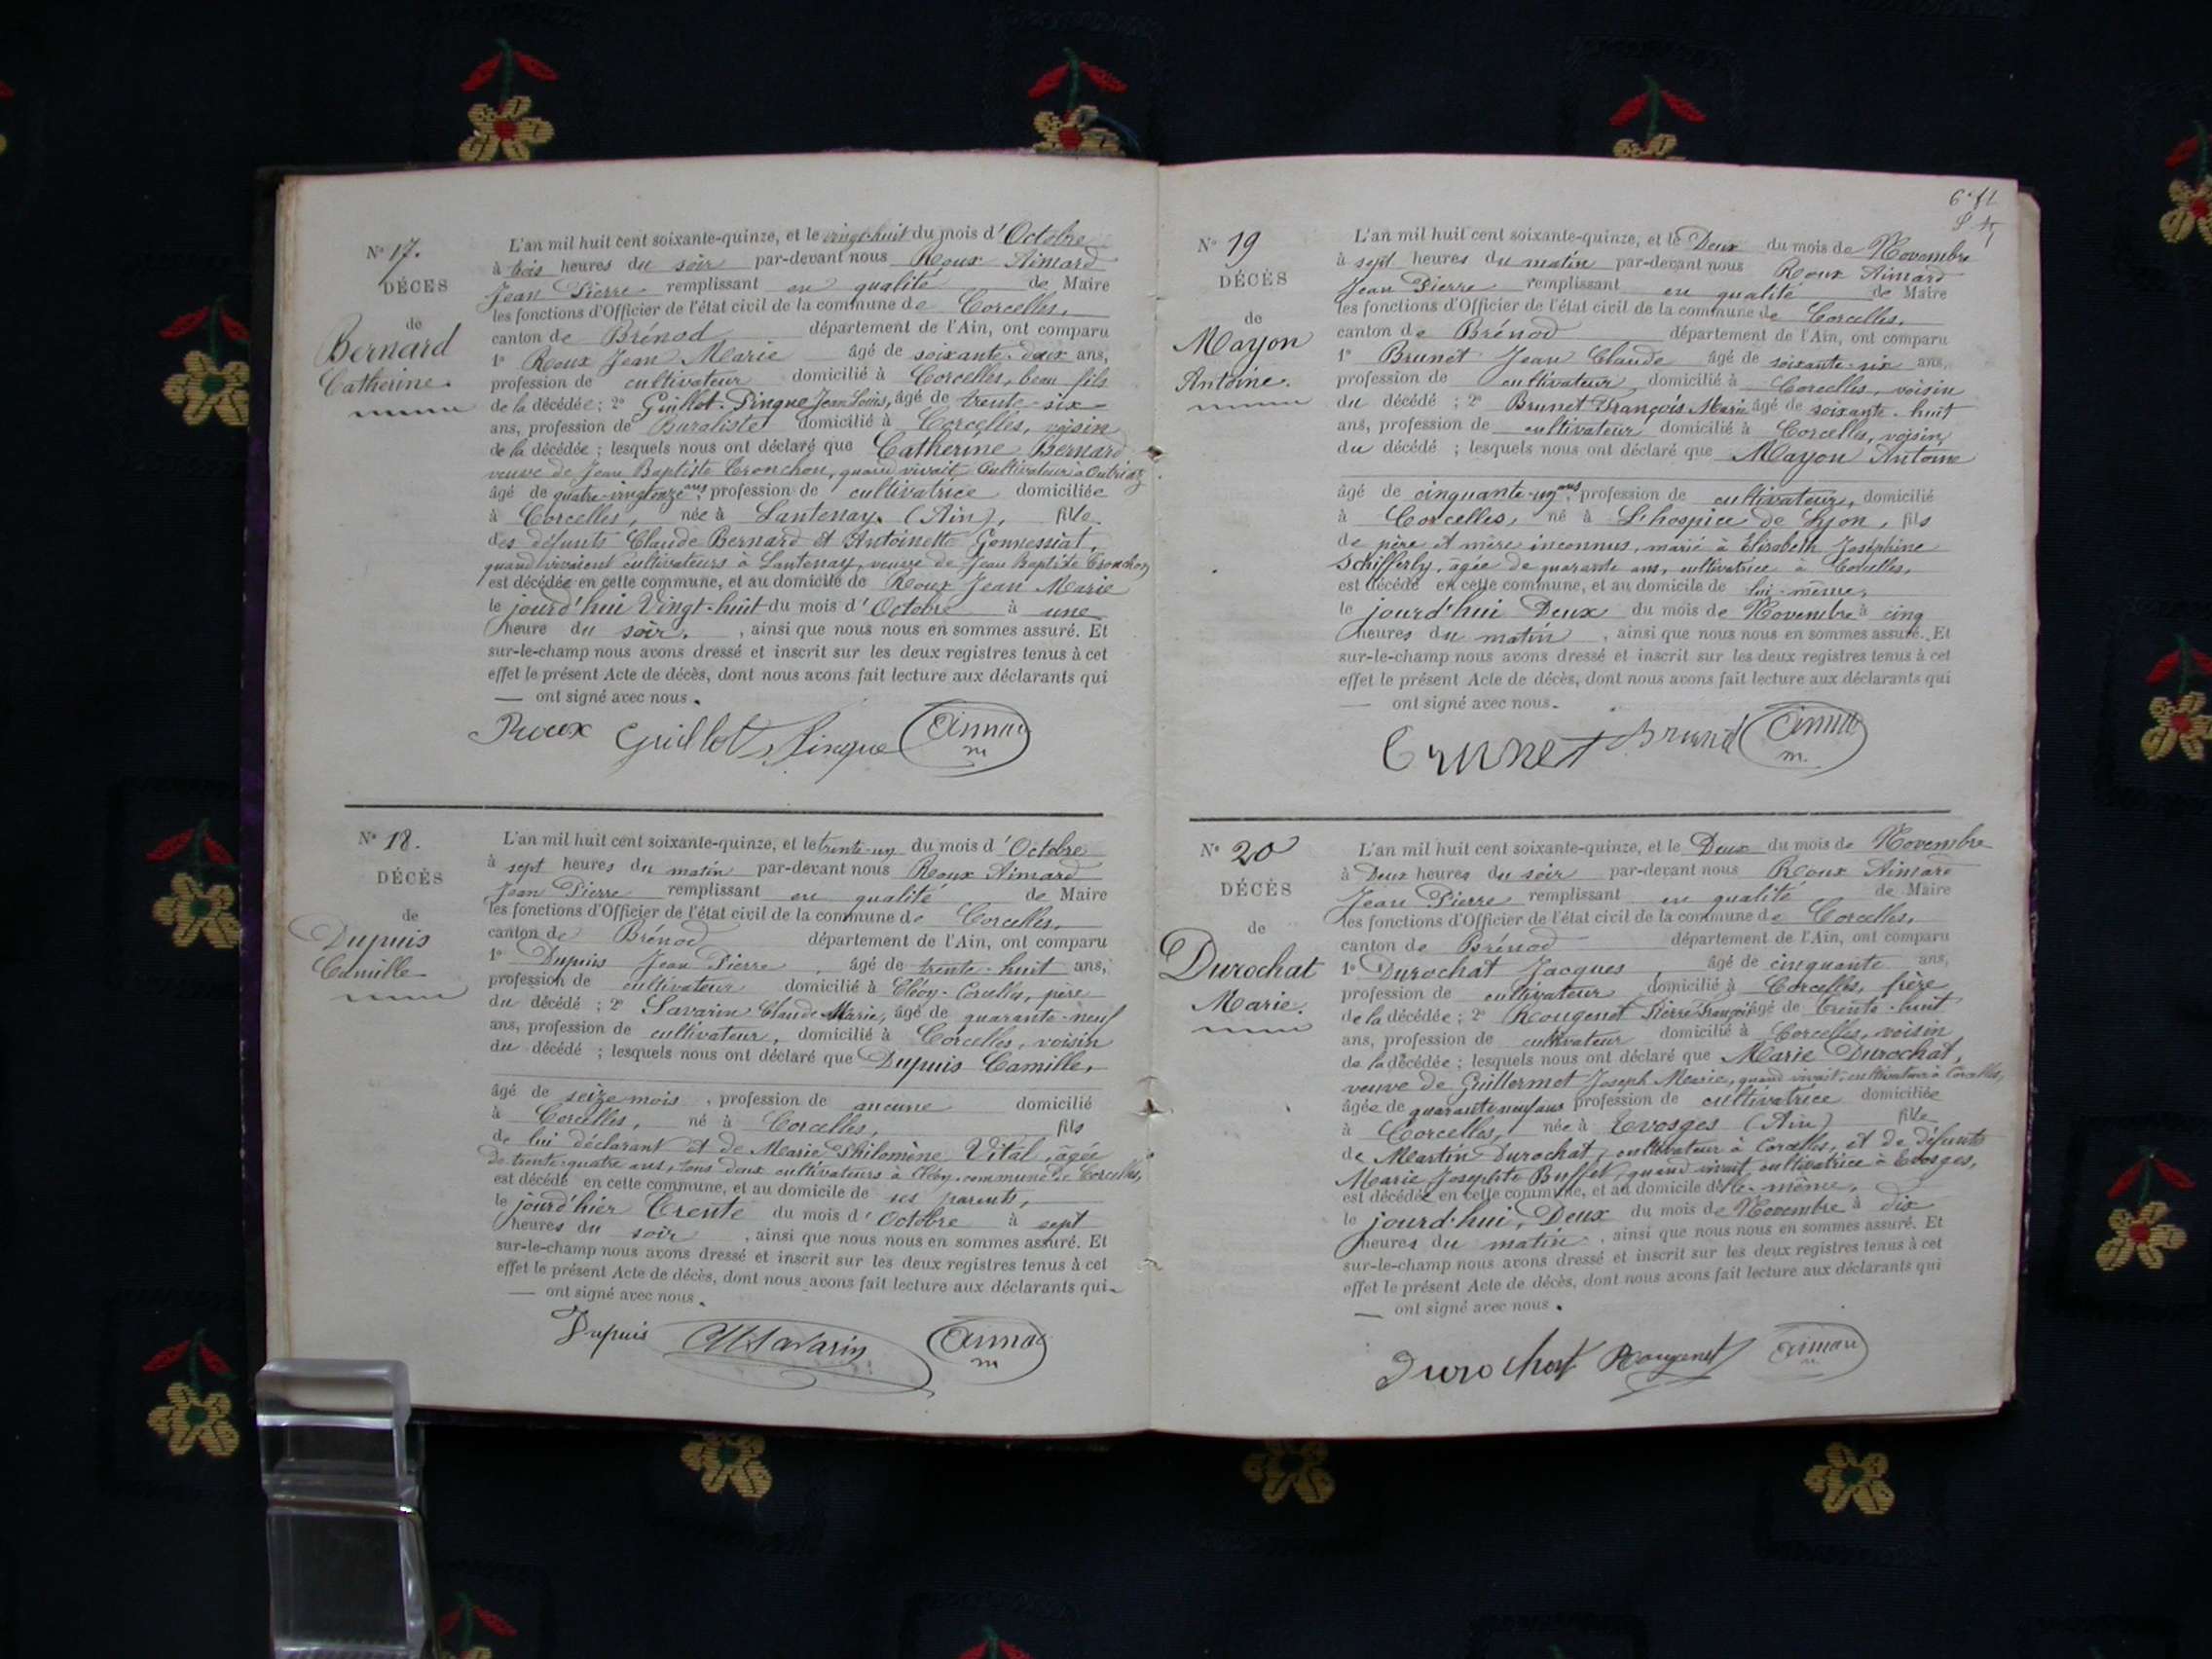 N° 17.
DÉCÈS
de
Bernard
Catherine.
L'an mil huit cent soixante-quinze, et le vingt-huit du mois d'Octobre
à trois heures du soir par-devant nous Roux Aimard
Jean Pierre remplissant en qualité de Maire
les fonctions d'Officier de l'état civil de la commune de Corcelles,
canton de Brénod département de l'Ain, ont comparu
1° Roux Jean Marie âgé de soixante-deux ans,
profession de cultivateur domicilié à Corcelles, beau fils
de la décédée; 2° Guillot-Pingue Jean Louis, âgé de trente-six
ans, profession de Buraliste domicilié à Corcelles, voisin
de la décédée; lesquels nous ont déclaré que Catherine Bernard
veuve de Jean Baptiste Tronchon, quand vivait cultivateur à Outriaz
âgé de quatre-vingt onze ans, profession de cultivatrice domiciliée
à Corcelles, née à Lantenay. (Ain), fille
des défunts Claude Bernard et Antoinette Gonnessiat,
quand vivaient cultivateurs à Lantenay, veuve de Jean Baptiste Tronchon
est décédée en cette commune, et au domicile de Roux Jean Marie
le jourd'hui Vingt-huit du mois d'Octobre à une
heure du soir, ainsi que nous nous en sommes assuré. Et
sur-le-champ nous avons dressé et inscrit sur les deux registres tenus à cet
effet le présent Acte de décès, dont nous avons fait lecture aux déclarants qui
— ont signé avec nous.
Roux Guillot Pingue Aimard
m
N° 18.
DÉCÈS
de
Dupuis
Camille
L'an mil huit cent soixante-quinze, et le trente-un du mois d'Octobre
à sept heures du matin par-devant nous Roux Aimard
Jean Pierre remplissant en qualité de Maire
les fonctions d'Officier de l'état civil de la commune de Corcelles,
canton de Brénod département de l'Ain, ont comparu
1° Dupuis Jean Pierre, âgé de trente-huit ans,
profession de cultivateur domicilié à Cléon-Corcelles, père
du décédé; 2° Savarin Claude Marie, âgé de quarante-neuf
ans, profession de cultivateur, domicilié à Corcelles, voisin
du décédé; lesquels nous ont déclaré que Dupuis Camille,
âgé de seize mois, profession de aucune domicilié
à Corcelles, né à Corcelles, fils
de lui déclarant et de Marie Philomène Vital, âgée
de trente-quatre ans, tous deux cultivateurs à Cléon, commune de Corcelles,
est décédé en cette commune, et au domicile de ses parents,
le jourd'hier Trente du mois d'Octobre à sept
heures du soir, ainsi que nous nous en sommes assuré. Et
sur-le-champ nous avons dressé et inscrit sur les deux registres tenus à cet
effet le présent Acte de décès, dont nous avons fait lecture aux déclarants qui
— ont signé avec nous.
Dupuis Savarin Aimard
m
N° 19
DÉCÈS
de
Mayon
Antoine.
L'an mil huit cent soixante-quinze, et le Deux du mois de Novembre
à sept heures du matin par-devant nous Roux Aimard
Jean Pierre remplissant en qualité de Maire
les fonctions d'Officier de l'état civil de la commune de Corcelles,
canton de Brénod département de l'Ain, ont comparu
1° Brunet Jean Claude âgé de soixante-six ans,
profession de cultivateur domicilié à Corcelles, voisin
du décédé; 2° Brunet François Marie âgé de soixante-huit
ans, profession de cultivateur domicilié à Corcelles, voisin
du décédé; lesquels nous ont déclaré que Mayon Antoine
âgé de cinquante-un ans, profession de cultivateur, domicilié
à Corcelles, né à L'hospice de Lyon, fils
de père et mère inconnus, marié à Elisabeth Joséphine
Schifferly, âgée de quarante ans, cultivatrice à Corcelles,
est décédé en cette commune, et au domicile de lui-même,
le jourd'hui Deux du mois de Novembre à cinq
heures du matin, ainsi que nous nous en sommes assuré. Et
sur-le-champ nous avons dressé et inscrit sur les deux registres tenus à cet
effet le présent Acte de décès, dont nous avons fait lecture aux déclarants qui
— ont signé avec nous.
Brunet Brunet Aimard
m.
N° 20
DÉCÈS
de
Durochat
Marie.
L'an mil huit cent soixante-quinze, et le Deux du mois de Novembre
à Deux heures du soir par-devant nous Roux Aimard
Jean Pierre remplissant en qualité de Maire
les fonctions d'Officier de l'état civil de la commune de Corcelles,
canton de Brénod département de l'Ain, ont comparu
1° Durochat Jacques, âgé de cinquante ans,
profession de cultivateur domicilié à Corcelles, frère
de la décédée; 2° Rougenet Pierre François âgé de trente-huit
ans, profession de cultivateur domicilié à Corcelles, voisin
de la décédée; lesquels nous ont déclaré que Marie Durochat,
veuve de Guillermet Joseph Marie, quand vivait, cultivateur à Corcelles,
âgée de quarante neuf ans profession de cultivatrice domiciliée
à Corcelles, née à Evosges (Ain) fille
de Martin Durochat, cultivateur à Corcelles, et de défunte
Marie Josephte Buffet, quand vivait, cultivatrice à Evosges,
est décédée en cette commune, et au domicile d'elle-même,
le jourd'hui, Deux du mois de Novembre à dix
heures du matin, ainsi que nous nous en sommes assuré. Et
sur-le-champ nous avons dressé et inscrit sur les deux registres tenus à cet
effet le présent Acte de décès, dont nous avons fait lecture aux déclarants qui
— ont signé avec nous.
Durochat Rougenet Aimard